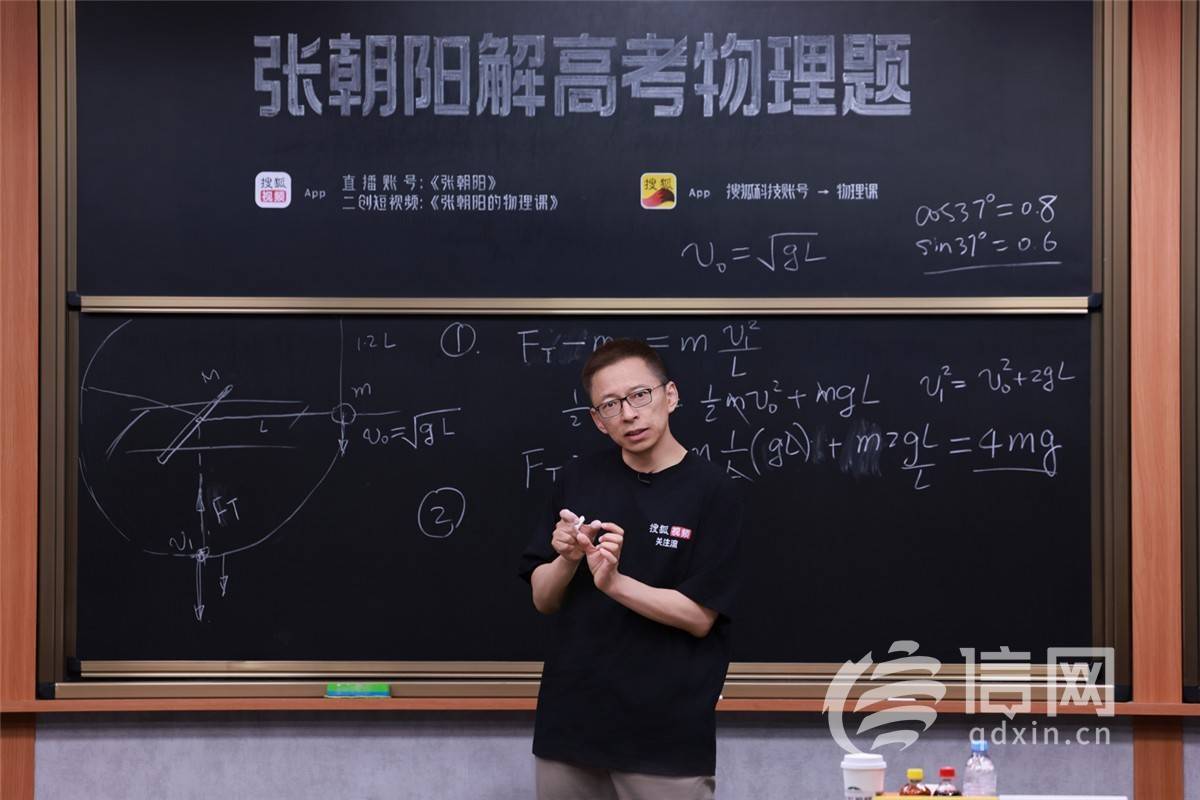 张朝阳解高考物理题
搜狐
视频
App
直播账号:《张朝阳》
二创短视频:《张朝阳的物理课》
搜狐
App
搜狐科技账号 → 物理课
cos37°=0.8
sin37°=0.6
v₀=√gL
1.2L
M
m
L
v₀=√gL
FT
v₁
①.
F_T - m = m v₁²/L
1/2 1/2 mv₀² + mgL
v₁² = v₀² + 2gL
F_T (gL) + m 2gL/L = 4mg
②
搜狐 视频
关注流
信网
qdxin.cn